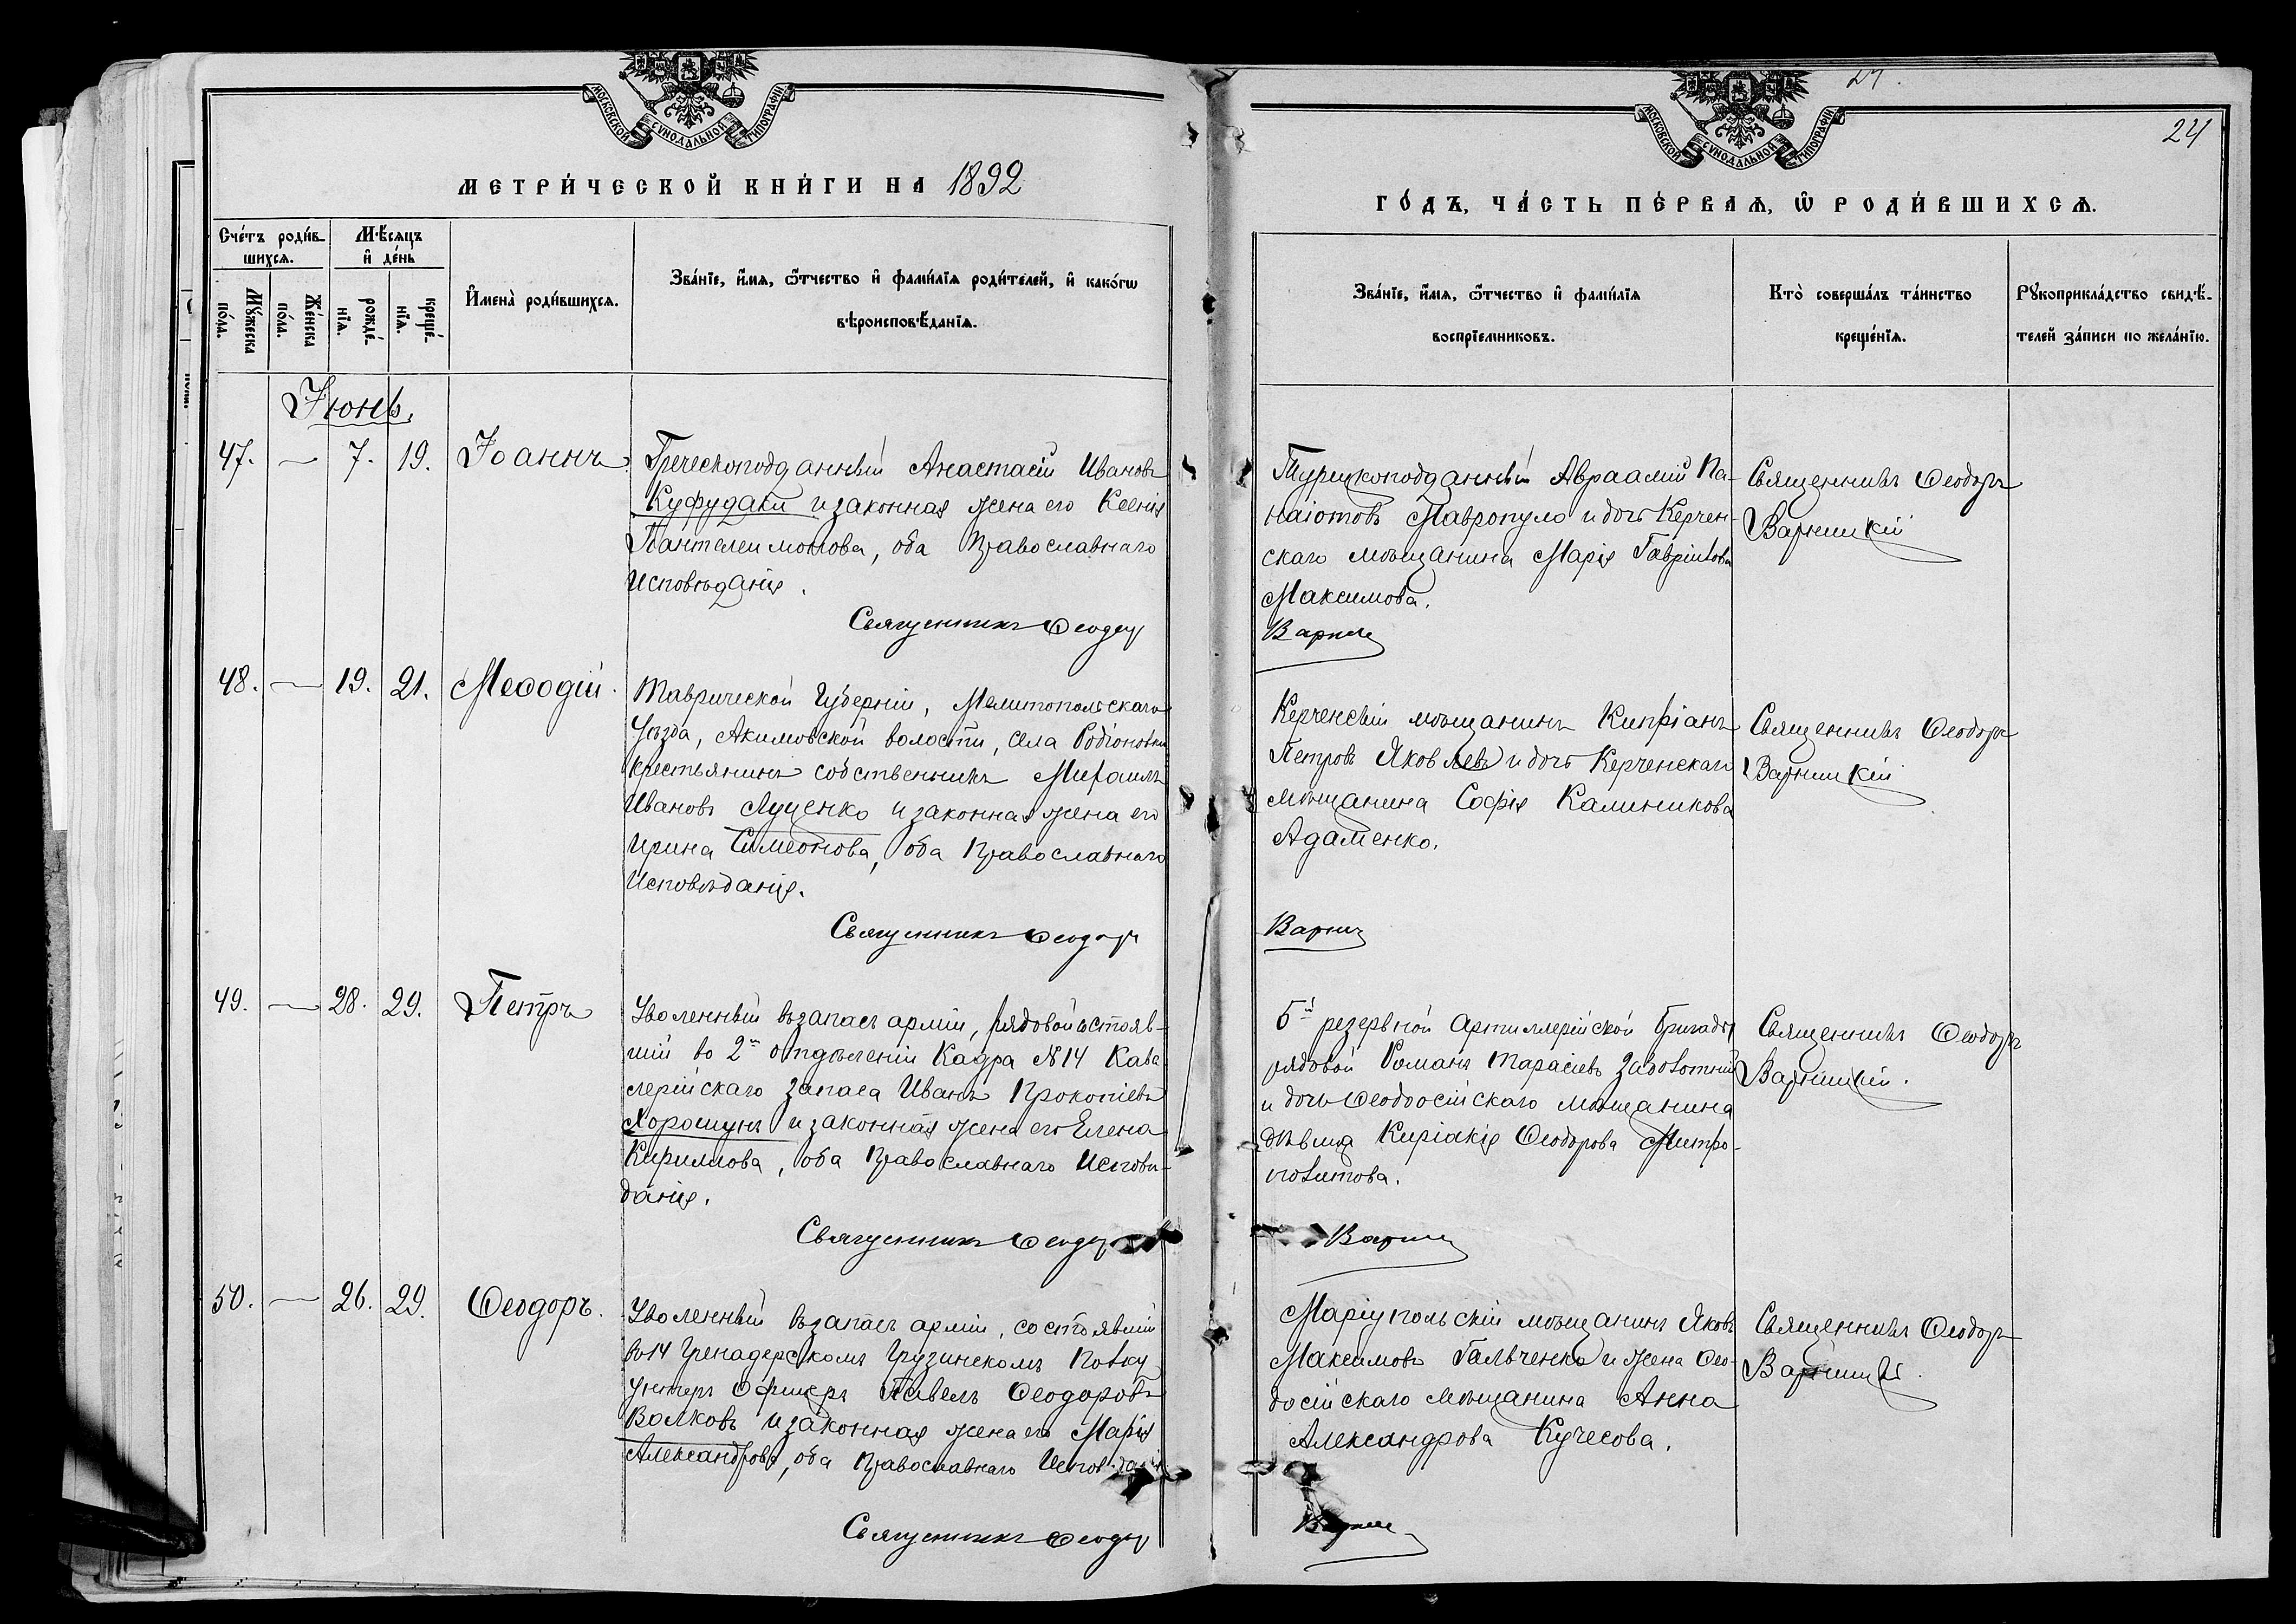 МОСКОВСКОЙ СѴНОДАЛЬНОЙ ТИПОГРАФІИ
МЕТРИ́ЧЕСКОЙ КНИ́ГИ НА 1892
Сче́тъ роди́в-
шихсѧ.
Мѣ́сѧцъ
и҆ де́нь
Мꙋ́жеска
по́ла.
Же́нска
по́ла.
рожде́-
нїѧ.
креще́-
нїѧ.
И҆мена̀ роди́вшихсѧ.
Зва́нїе, и҆́мѧ, ѻ҆́тчество и҆ фами́лїѧ роди́телей, и҆ како́гѡ
вѣроисповѣ́данїѧ.
Іюнь.
47. — 7. 19. Іоаннъ
Греческоподданный Анастасій Ивановъ
Куфудаки и законная жена его Ксенія
Пантелеимонова, оба Православнаго
Исповѣданія.
Священникъ Ѳеодоръ
48. — 19. 21. Меѳодій.
Таврической Губерніи, Мелитопольскаго
Уѣзда, Акимовской волости, села Родіоновки
крестьянинъ собственникъ Михаилъ
Ивановъ Луценко и законная жена его
Ирина Симеонова, оба Православнаго
Исповѣданія.
Священникъ Ѳеодоръ
49. — 28. 29. Петръ
Уволенный въ запасъ арміи, рядовой состояв-
шій во 2ᵐ отдѣленіи Кадра №14 Кава
лерійскаго запаса Иванъ Прокопіевъ
Хорошунъ и законная жена его Елена
Кириллова, оба Православнаго Исповѣ-
данія.
Священникъ Ѳеодоръ
50. — 26. 29. Ѳеодоръ.
Уволенный въ запасъ арміи, состоявшій
въ 14 Гренадерскомъ Грузинскомъ Полку
Унтеръ Офицеръ Павелъ Ѳеодоровъ
Волковъ и законная жена его Марія
Александрова, оба Православнаго
Священникъ Ѳеодоръ
24.
МОСКОВСКОЙ СѴНОДАЛЬНОЙ ТИПОГРАФІИ
24
ГО́ДЪ, ЧА́СТЬ ПЕ́РВАѦ, Ѡ҆ РОДИ́ВШИХСѦ.
Зва́нїе, и҆́мѧ, ѻ҆́тчество и҆ фами́лїѧ
воспрїемниковъ.
Кто̀ соверша́лъ та́инство
креще́нїѧ.
Рꙋкоприкла́дство свидѣ́-
телей за́писи по жела́нїю.
Турецкоподданный Авраамій Па-
наіотовъ Мавропуло и дочь Керчен-
скаго мѣщанина Марія Гавріилова
Максимова.
Варниц
Священникъ Ѳеодоръ
Варницкій
Керченскій мѣщанинъ Кипріанъ
Петровъ Яковлевъ и дочь Керченскаго
мѣщанина Софія Калиникова
Адаменко.
Варниц
Священникъ Ѳеодоръ
Варницкій
5й резервной Артиллерійской бригады
рядовой Романъ Тарасіевъ Заболотный
и дочь Ѳеодосійскаго мѣщанина
дѣвица Киріакія Ѳеодорова Митро-
политова.
Варниц
Священникъ Ѳеодоръ
Варницкій.
Маріупольскій мѣщанинъ Яковъ
Максимовъ Гальченко и жена Ѳео-
досійскаго мѣщанина Анна
Александрова Кучесова.
Варниц
Священникъ Ѳеодоръ
Варницкій.